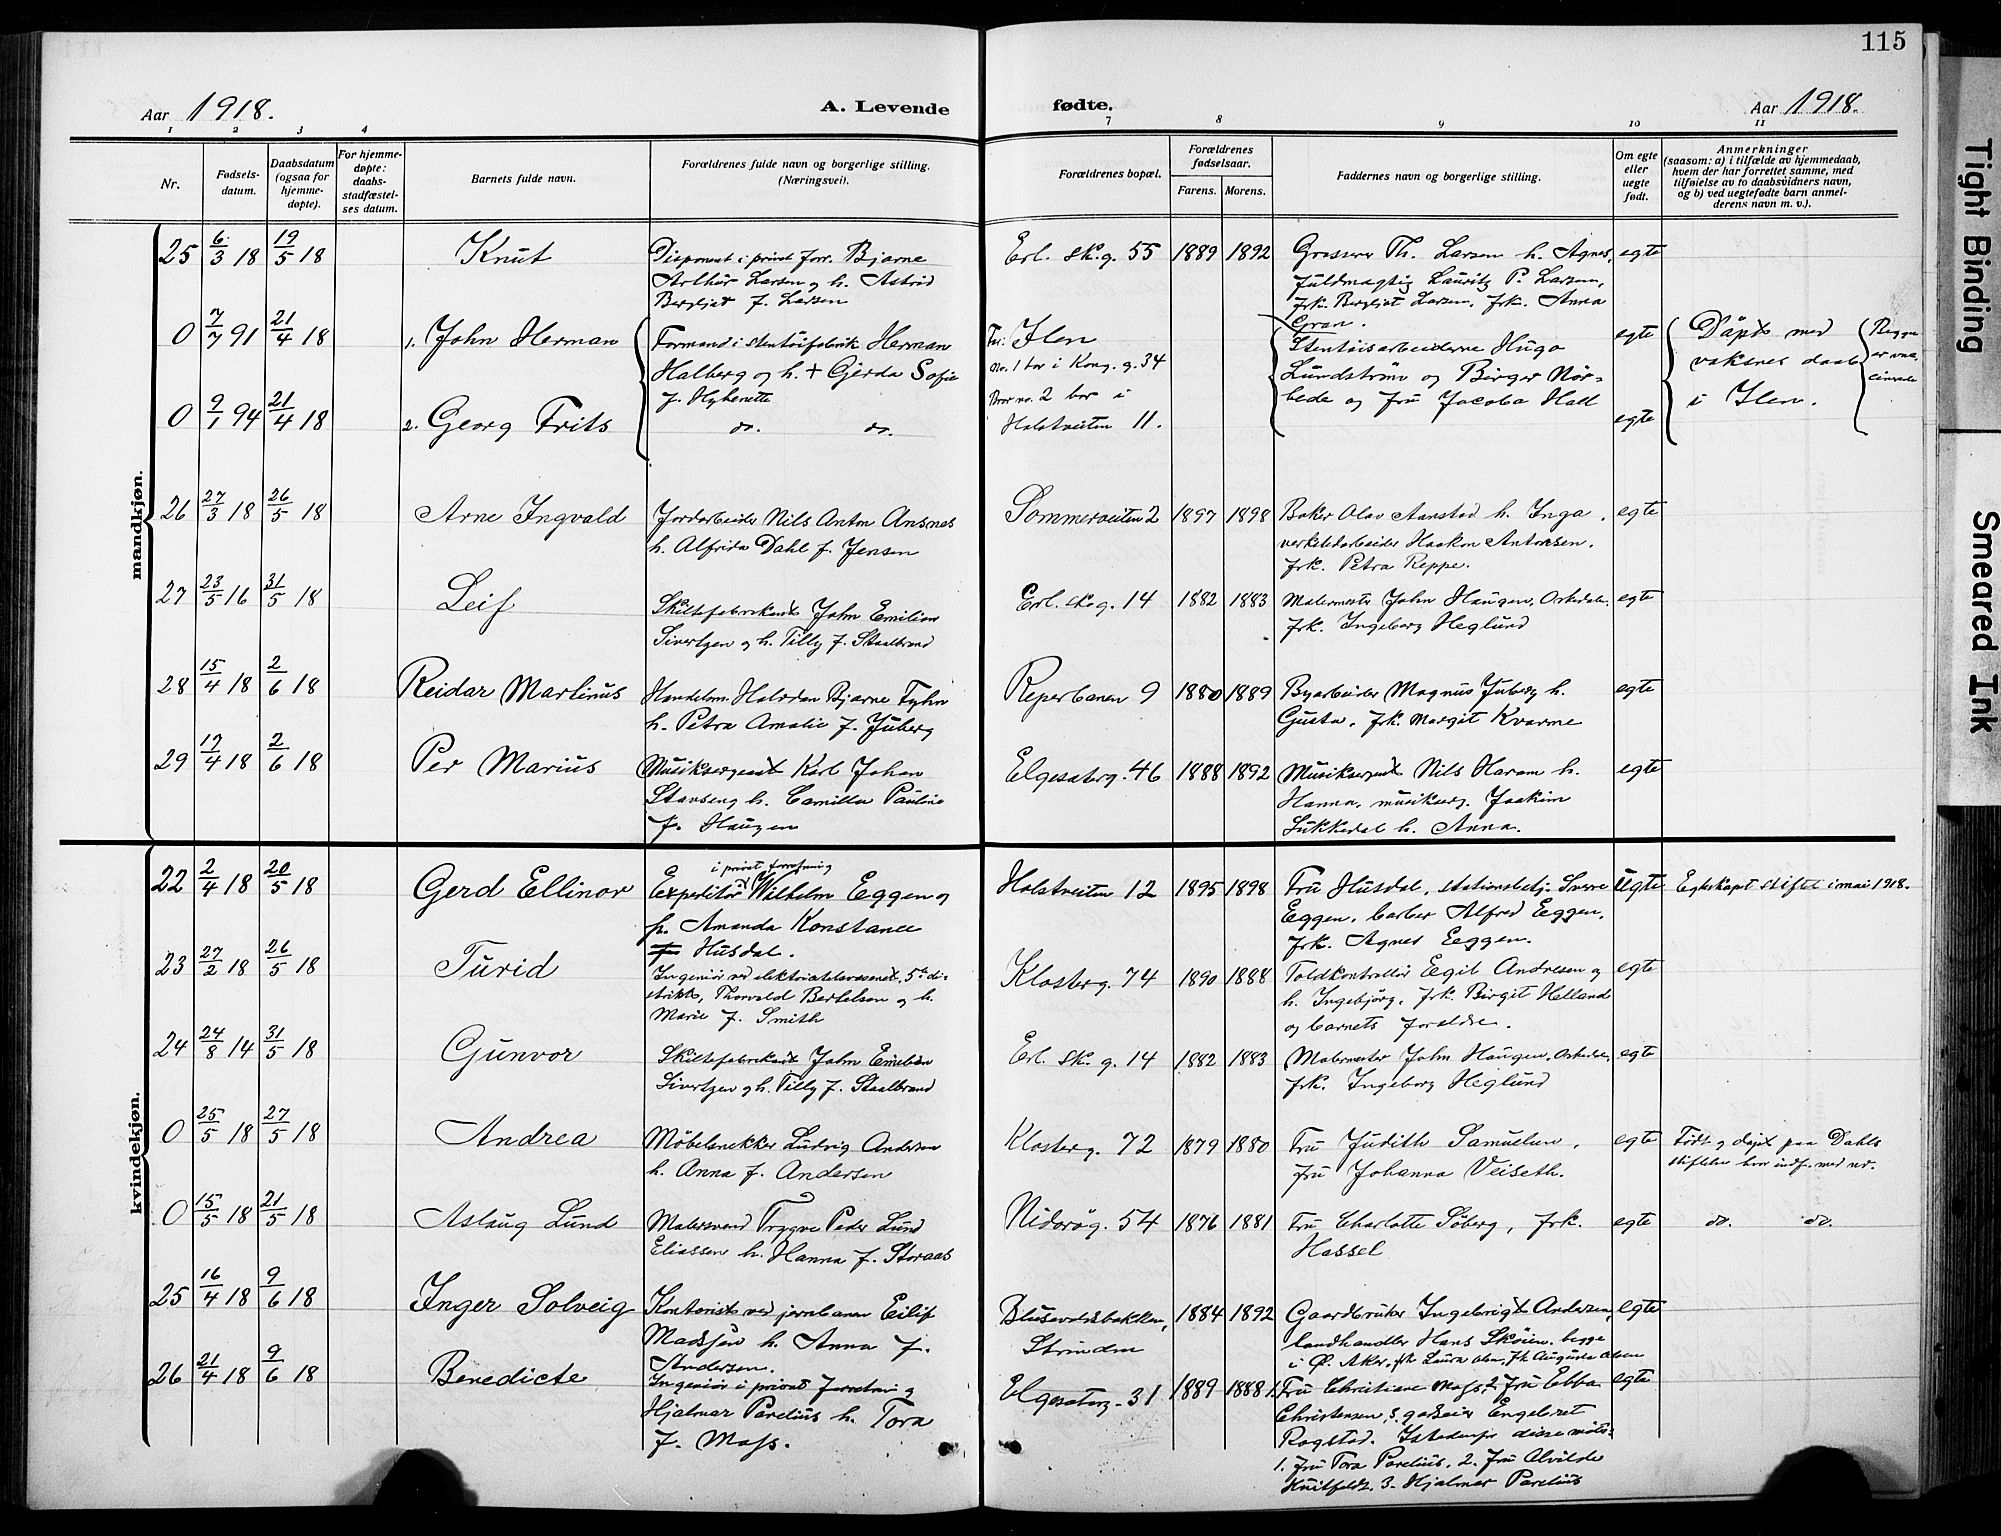 115
Aar 1918. A. Levende fødte. Aar 1918.
1 2 3 4 7 8 9 10 11
Nr.
Fødsels-
datum.
Daabsdatum
(ogsaa for
hjemme-
døpte).
For hjemme-
døpte:
daabs-
stadfæstel-
ses datum.
Barnets fulde navn.
Forældrenes fulde navn og borgerlige stilling.
(Næringsvei).
Forældrenes bopæl.
Forældrenes
fødselsaar.
Farens. Morens.
Faddernes navn og borgerlige stilling.
Om egte
eller
uegte
født.
Anmerkninger
(saasom: a) i tilfælde av hjemmedaab,
hvem der har forrettet samme, med
tilføielse av to daabsvidners navn,
og b) ved uegtefødte barn anmel-
derens navn m. v.).
mandkjøn.
25 6/3 18 19/5 18 Knut
Disponent i privat forr. Bjarne
Arthur Larsen og h. Astrid
Bergljot f. Larsen
Erl. sk. g. 55 1889 1892
Grosserer Th. Larsen h. Agnes,
fuldmægtig Lauritz P. Larsen,
frk. Bergljot Larsen, frk. Anna
Gran.
egte
0 7/7 91 21/4 18 1. John Herman
Formand i stentøifabrik Herman
Halberg og h. + Gerda Sofie
f. Hybenette
Far: Ilen
No. 1 bor i Kong. g. 34
Stentøisarbeiderne Hugo
Lundström og Birger Nør-
bede og fru Jacoba Hall
egte
Døpt med
voksnes daab
i Ilen.
Begge
er
0 9/1 94 21/4 18 2. Georg Frits
do. do.
Bror no. 2 bor i
Holstveiten 11.
egte
26 27/3 18 26/5 18 Arne Ingvald
Jordarbeider Nils Anton Ansnes
h. Alfrida Dahl f. Jensen
Sommerveiten 2 1897 1898
Baker Olav Aanstad h. Inga,
verkstedarbeider Haakon Antonsen,
frk. Petra Reppe.
egte
27 23/5 16 31/5 18 Leif
Skiltefabrikant John Emilian
Sivertzen og h. Tilly f. Staalbrand
Erl. sk. g. 14 1882 1883
Malermester John Haugen, Orkedalen,
frk. Ingeborg Heglund
egte
28 15/4 18 2/6 18 Reidar Martinus
Handelsm. Halvdan Bjarne Tyhn
h. Petra Amalie f. Juberg
Reperbanen 9 1880 1889
Byarbeider Magnus Juberg h.
Gusta, frk. Margit Kvarme
egte
29 17/4 18 2/6 18 Per Marius
Musiksergeant Karl Johan
Stavseng h. Camilla Pauline
f. Haugen
Elgesæterg. 46 1888 1892
Musiksergeant Nils Haram h.
Hanna, musikserg. Joakim
Lukkedal h. Anna.
egte
kvindekjøn.
22 2/4 18 20/5 18 Gerd Ellinor
i privat forretning
Expeditør Wilhelm Eggen og
h. Amanda Konstance
f. Husdal.
Holstveiten 12 1895 1898
Fru Husdal, stationsbetj. Sverre
Eggen, barber Alfred Eggen,
frk. Agnes Eggen.
uegte
Egteskapet stiftet i mai 1918.
23 27/2 18 26/5 18 Turid
Ingeniør ved elektricitetsvesenet, 5te di-
strikts, Thorvald Bertelsen og h.
Marie f. Smith
Klosterg. 74 1890 1888
Toldkontrollør Egil Andresen og
h. Ingebjørg, frk. Birgit Helland
og barnets forældre.
egte
24 24/8 14 31/5 18 Gunvor
Skiltefabrikant John Emilian
Sivertzen og h. Tilly f. Staalbrand
Erl. sk. g. 14 1882 1883
Malermester John Haugen, Orkedalen,
frk. Ingeborg Heglund
egte
0 25/5 18 27/5 18 Andrea
Møbelsnekker Ludvig Andersen
h. Anna f. Andersen
Klosterg. 72 1879 1880
Fru Judith Samuelsen,
fru Johanna Veiseth.
egte
Født og døpt paa Dahls
stiftelse hvor indf. med nr.
0 15/5 18 21/5 18 Aslaug Lund
Malersvend Trygve Peder Lund
Eliassen h. Hanna f. Storaas
Nidarøg. 54 1876 1881
Fru Charlotte Søberg, frk.
Hassel
egte
do. do.
25 16/4 18 9/6 18 Inger Solveig
Kontorist ved jernbanen Eilif
Madsjøv h. Anna f.
Andersen.
Blusevoldsbakken,
Strinden
1884 1892
Gaardbruker Ingebrigt Andersen,
landhandler Hans Skøien, begge
i Ø. Aker, frk Laura Olsen, frk Augusta Olsen
egte
26 21/4 18 9/6 18 Benedicte
Ingeniør i privat forretning
Hjalmar Parelius h. Tora
f. Mohs.
Elgesæterg. 31 1889 1888
1. Fru Christiane Mohs, 2. Fru Ebba
Christensen, 3. godseier Engebret
Rogstad. Istedenfor disse møtte:
1. fru Tora Parelius, 2. fru Alvilde
Huitfeldt, 3. Hjalmar Parelius
egte
Tight Binding
Smeared Ink